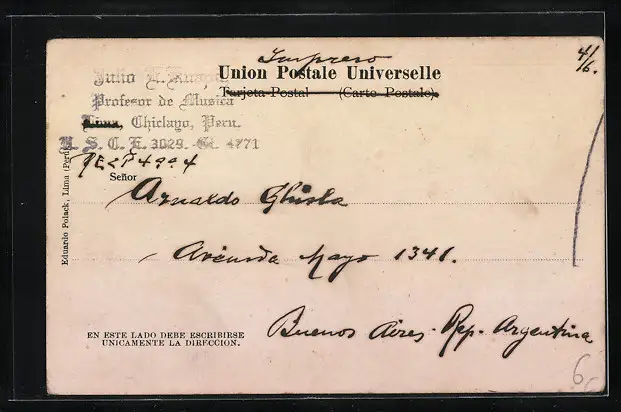 Impreso
4/6.
Union Postale Universelle
Tarjeta Postal (Carte Postale).
Julio
Profesor de Musica
Lima, Chiclayo, Peru.
S. C. E. 3029. 4771
Señor
Arnaldo Ghisla
Avenida Mayo 1341.
Buenos Aires. Rep. Argentina
EN ESTE LADO DEBE ESCRIBIRSE
UNICAMENTE LA DIRECCION.
Eduardo Polack, Lima (Perú)
6